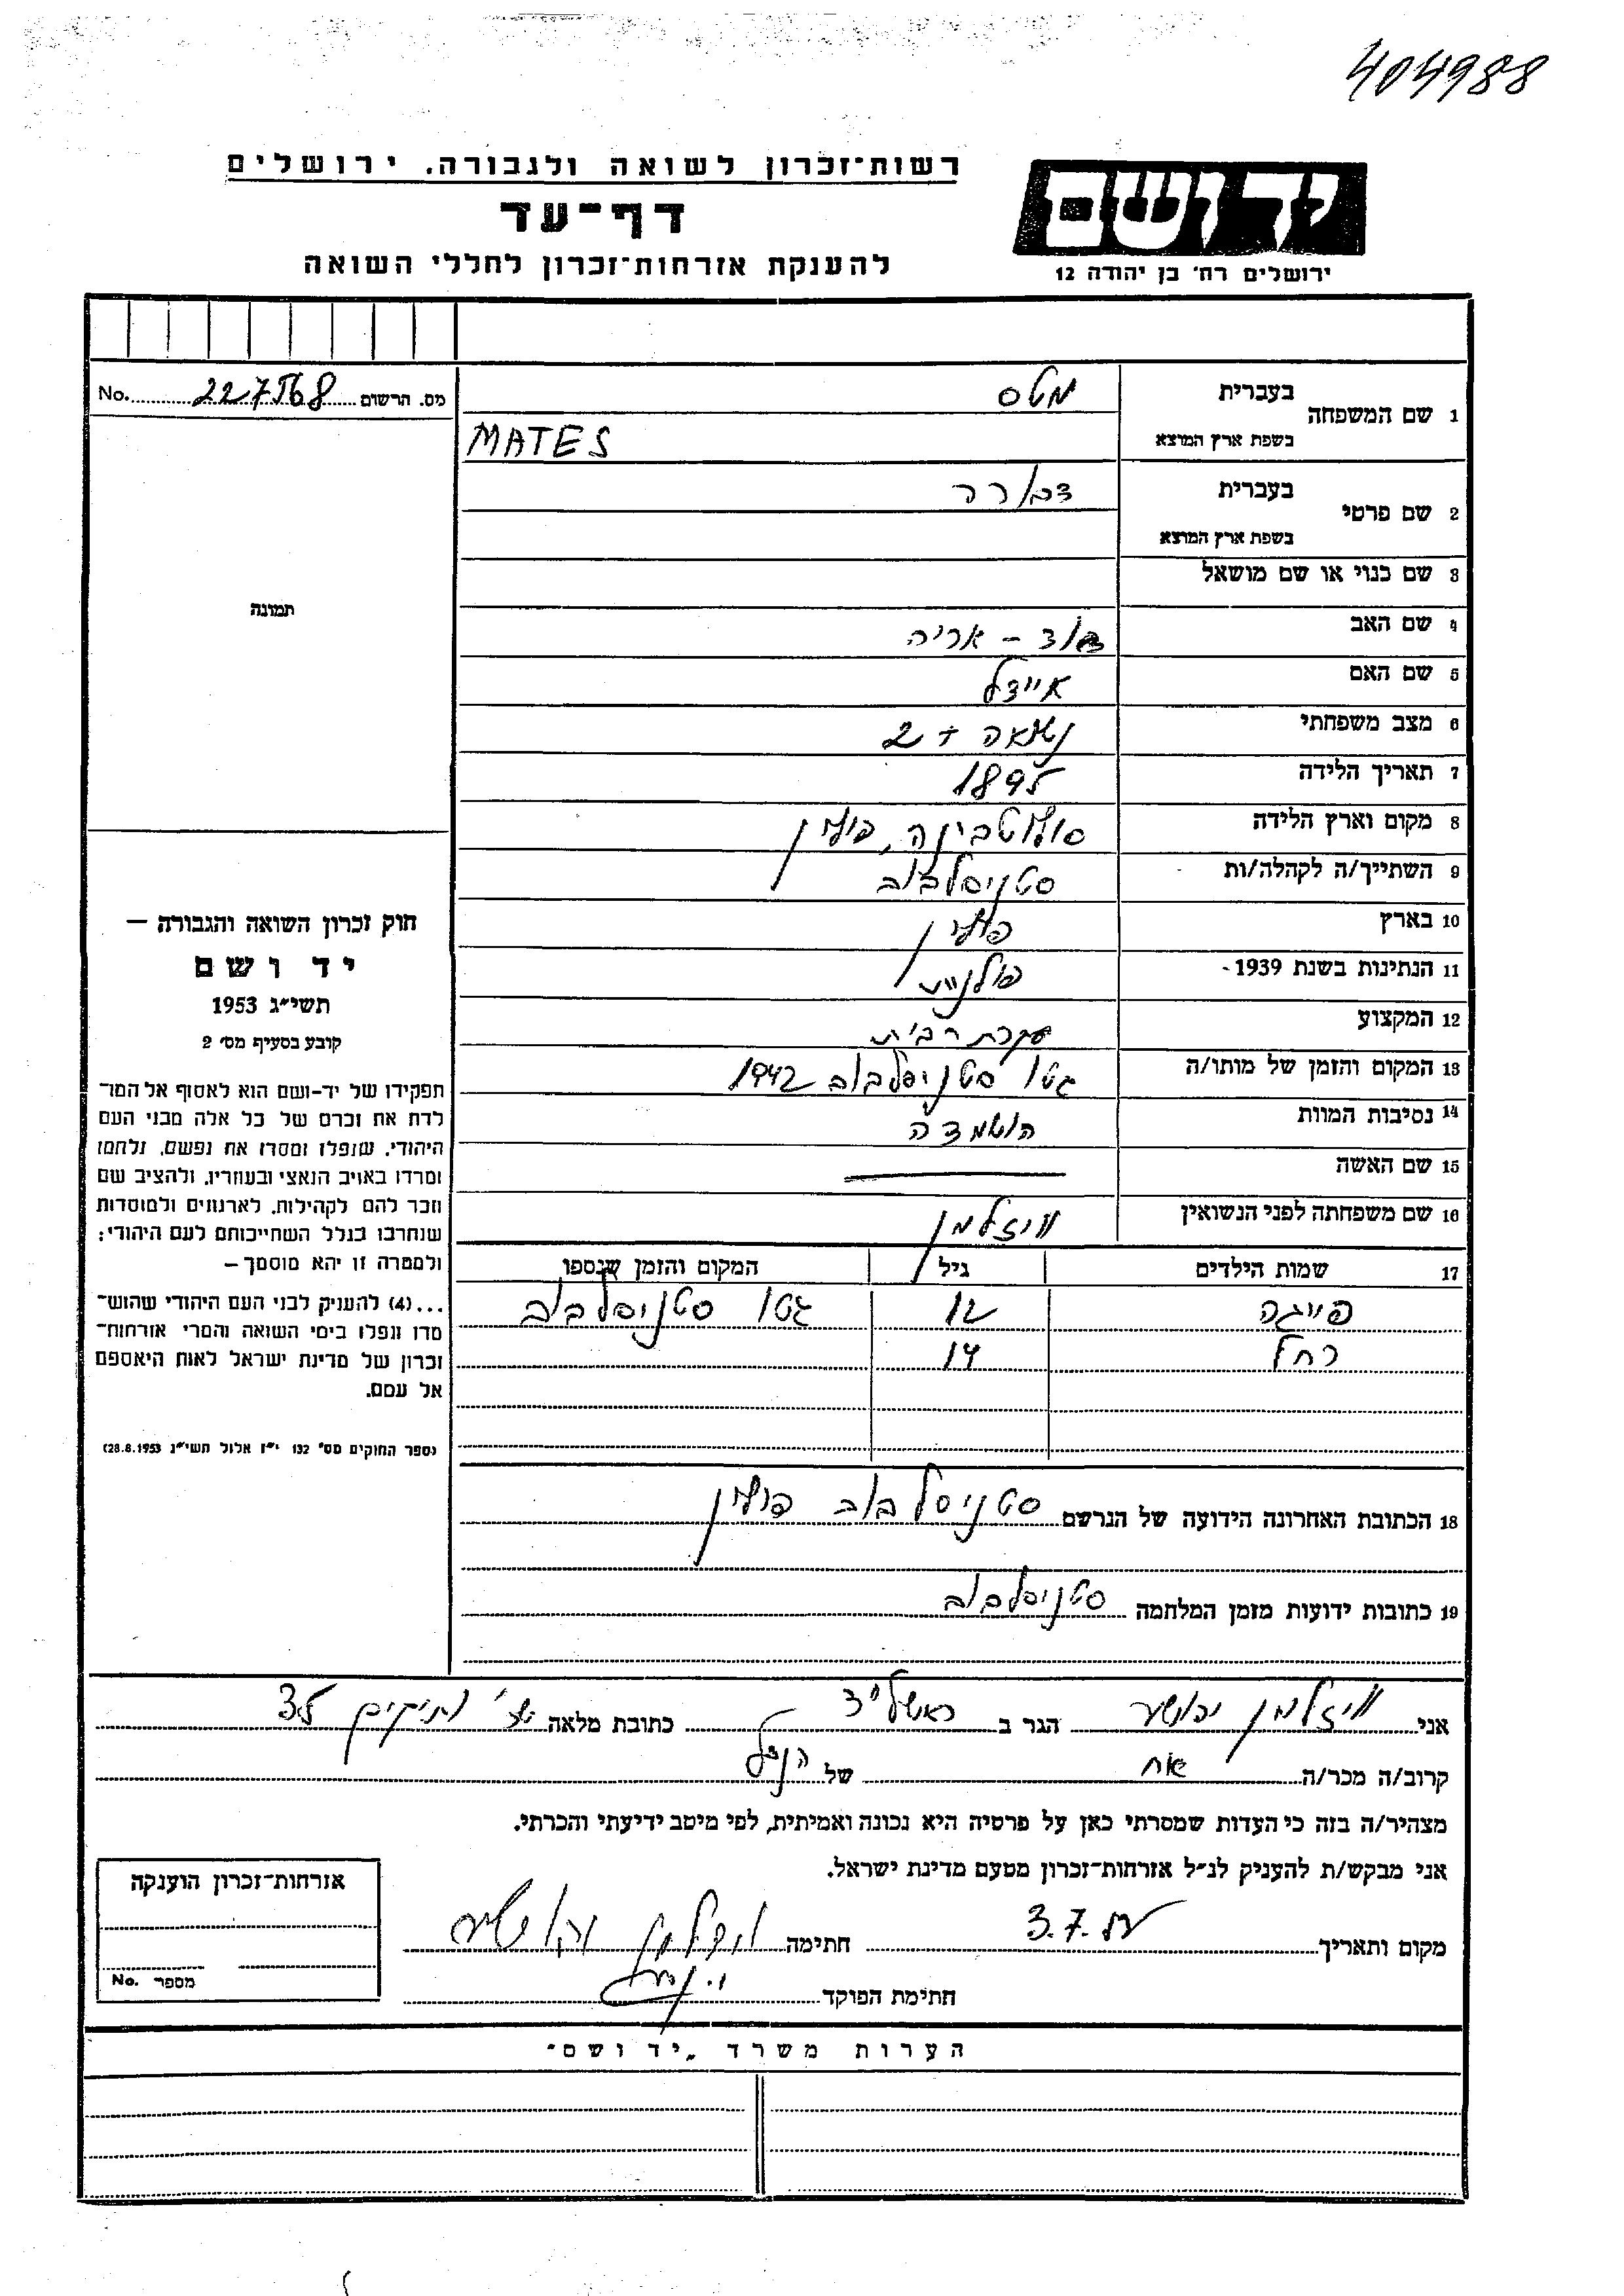 404988
רשות־זכרון לשואה ולגבורה, ירושלים
דף־עד
להענקת אזרחות־זכרון לחללי השואה
יד ושם
ירושלים רח' בן יהודה 12
מס. הרשום 227568 No.
1 שם המשפחה בעברית מטס
בשפת ארץ המוצא MATES
2 שם פרטי בעברית דבורה
בשפת ארץ המוצא
3 שם כנוי או שם מושאל
4 שם האב דוד - אריה
5 שם האם איידל
6 מצב משפחתי נשואה + 2
7 תאריך הלידה 1895
8 מקום וארץ הלידה סולוטבינה, פולין
9 השתייך/ה לקהלה/ות סטניסלבוב
10 בארץ פולין
11 הנתינות בשנת 1939- פולנייה
12 המקצוע עקרת הבית
13 המקום והזמן של מותו/ה גטו סטניסלבוב 1942
14 נסיבות המוות הושמדה
15 שם האשה
16 שם משפחתה לפני הנשואין ויזלמן
17 שמות הילדים גיל המקום והזמן שנספו
פייגה 12 גטו סטניסלבוב
רחל 14
18 הכתובת האחרונה הידועה של הנרשם סטניסלבוב פולין
19 כתובות ידועות מזמן המלחמה סטניסלבוב
תמונה
חוק זכרון השואה והגבורה —
יד ושם
תשי״ג 1953
קובע בסעיף מס' 2
תפקידו של יד-ושם הוא לאסוף אל המו־
לדת את זכרם של כל אלה מבני העם
היהודי, שנפלו ומסרו את נפשם, נלחמו
ומרדו באויב הנאצי ובעוזריו, ולהציב שם
וזכר להם לקהילות, לארגונים ולמוסדות
שנחרבו בגלל השתייכותם לעם היהודי;
ולמטרה זו יהא מוסמך —
...(4) להעניק לבני העם היהודי שהוש־
מדו ונפלו בימי השואה והמרי אזרחות־
זכרון של מדינת ישראל לאות היאספם
אל עמם.
(ספר החוקים מס' 132 י״ז אלול תשי״ג 28.8.1953)
אני ויזלמן הגר ב ראשל״צ כתובת מלאה ותיקים
קרוב/ה מכר/ה אח של הנ״ל
מצהיר/ה בזה כי העדות שמסרתי כאן על פרטיה היא נכונה ואמיתית, לפי מיטב ידיעתי והכרתי.
אני מבקש/ת להעניק לנ״ל אזרחות־זכרון מטעם מדינת ישראל.
מקום ותאריך 3.7. חתימה
חתימת הפוקד
אזרחות־זכרון הוענקה
מספר No.
הערות משרד „יד ושם״